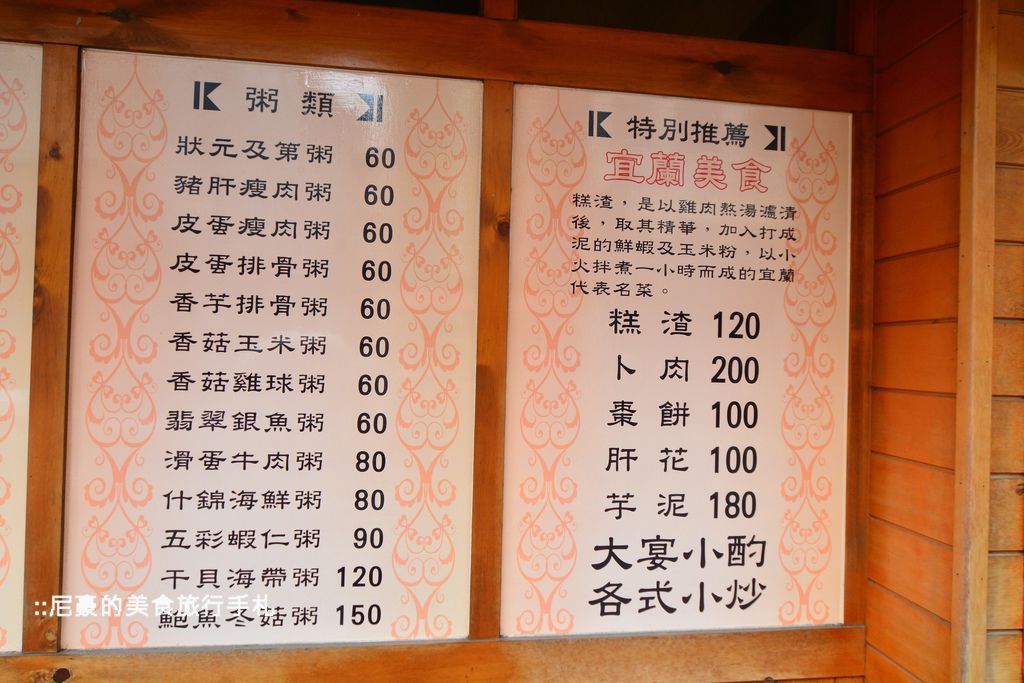 粥類
狀元及第粥 60
豬肝瘦肉粥 60
皮蛋瘦肉粥 60
皮蛋排骨粥 60
香芋排骨粥 60
香菇玉米粥 60
香菇雞球粥 60
翡翠銀魚粥 60
滑蛋牛肉粥 80
什錦海鮮粥 80
五彩蝦仁粥 90
干貝海帶粥 120
鮑魚冬菇粥 150
::尼豪的美食旅行手札
特別推薦
宜蘭美食
糕渣，是以雞肉熬湯瀘漬
後，取其精華，加入打成
泥的鮮蝦及玉米粉，以小
火拌煮一小時而成的宜蘭
代表名菜。
糕渣 120
卜肉 200
棗餅 100
肝花 100
芋泥 180
大宴小酌
各式小炒